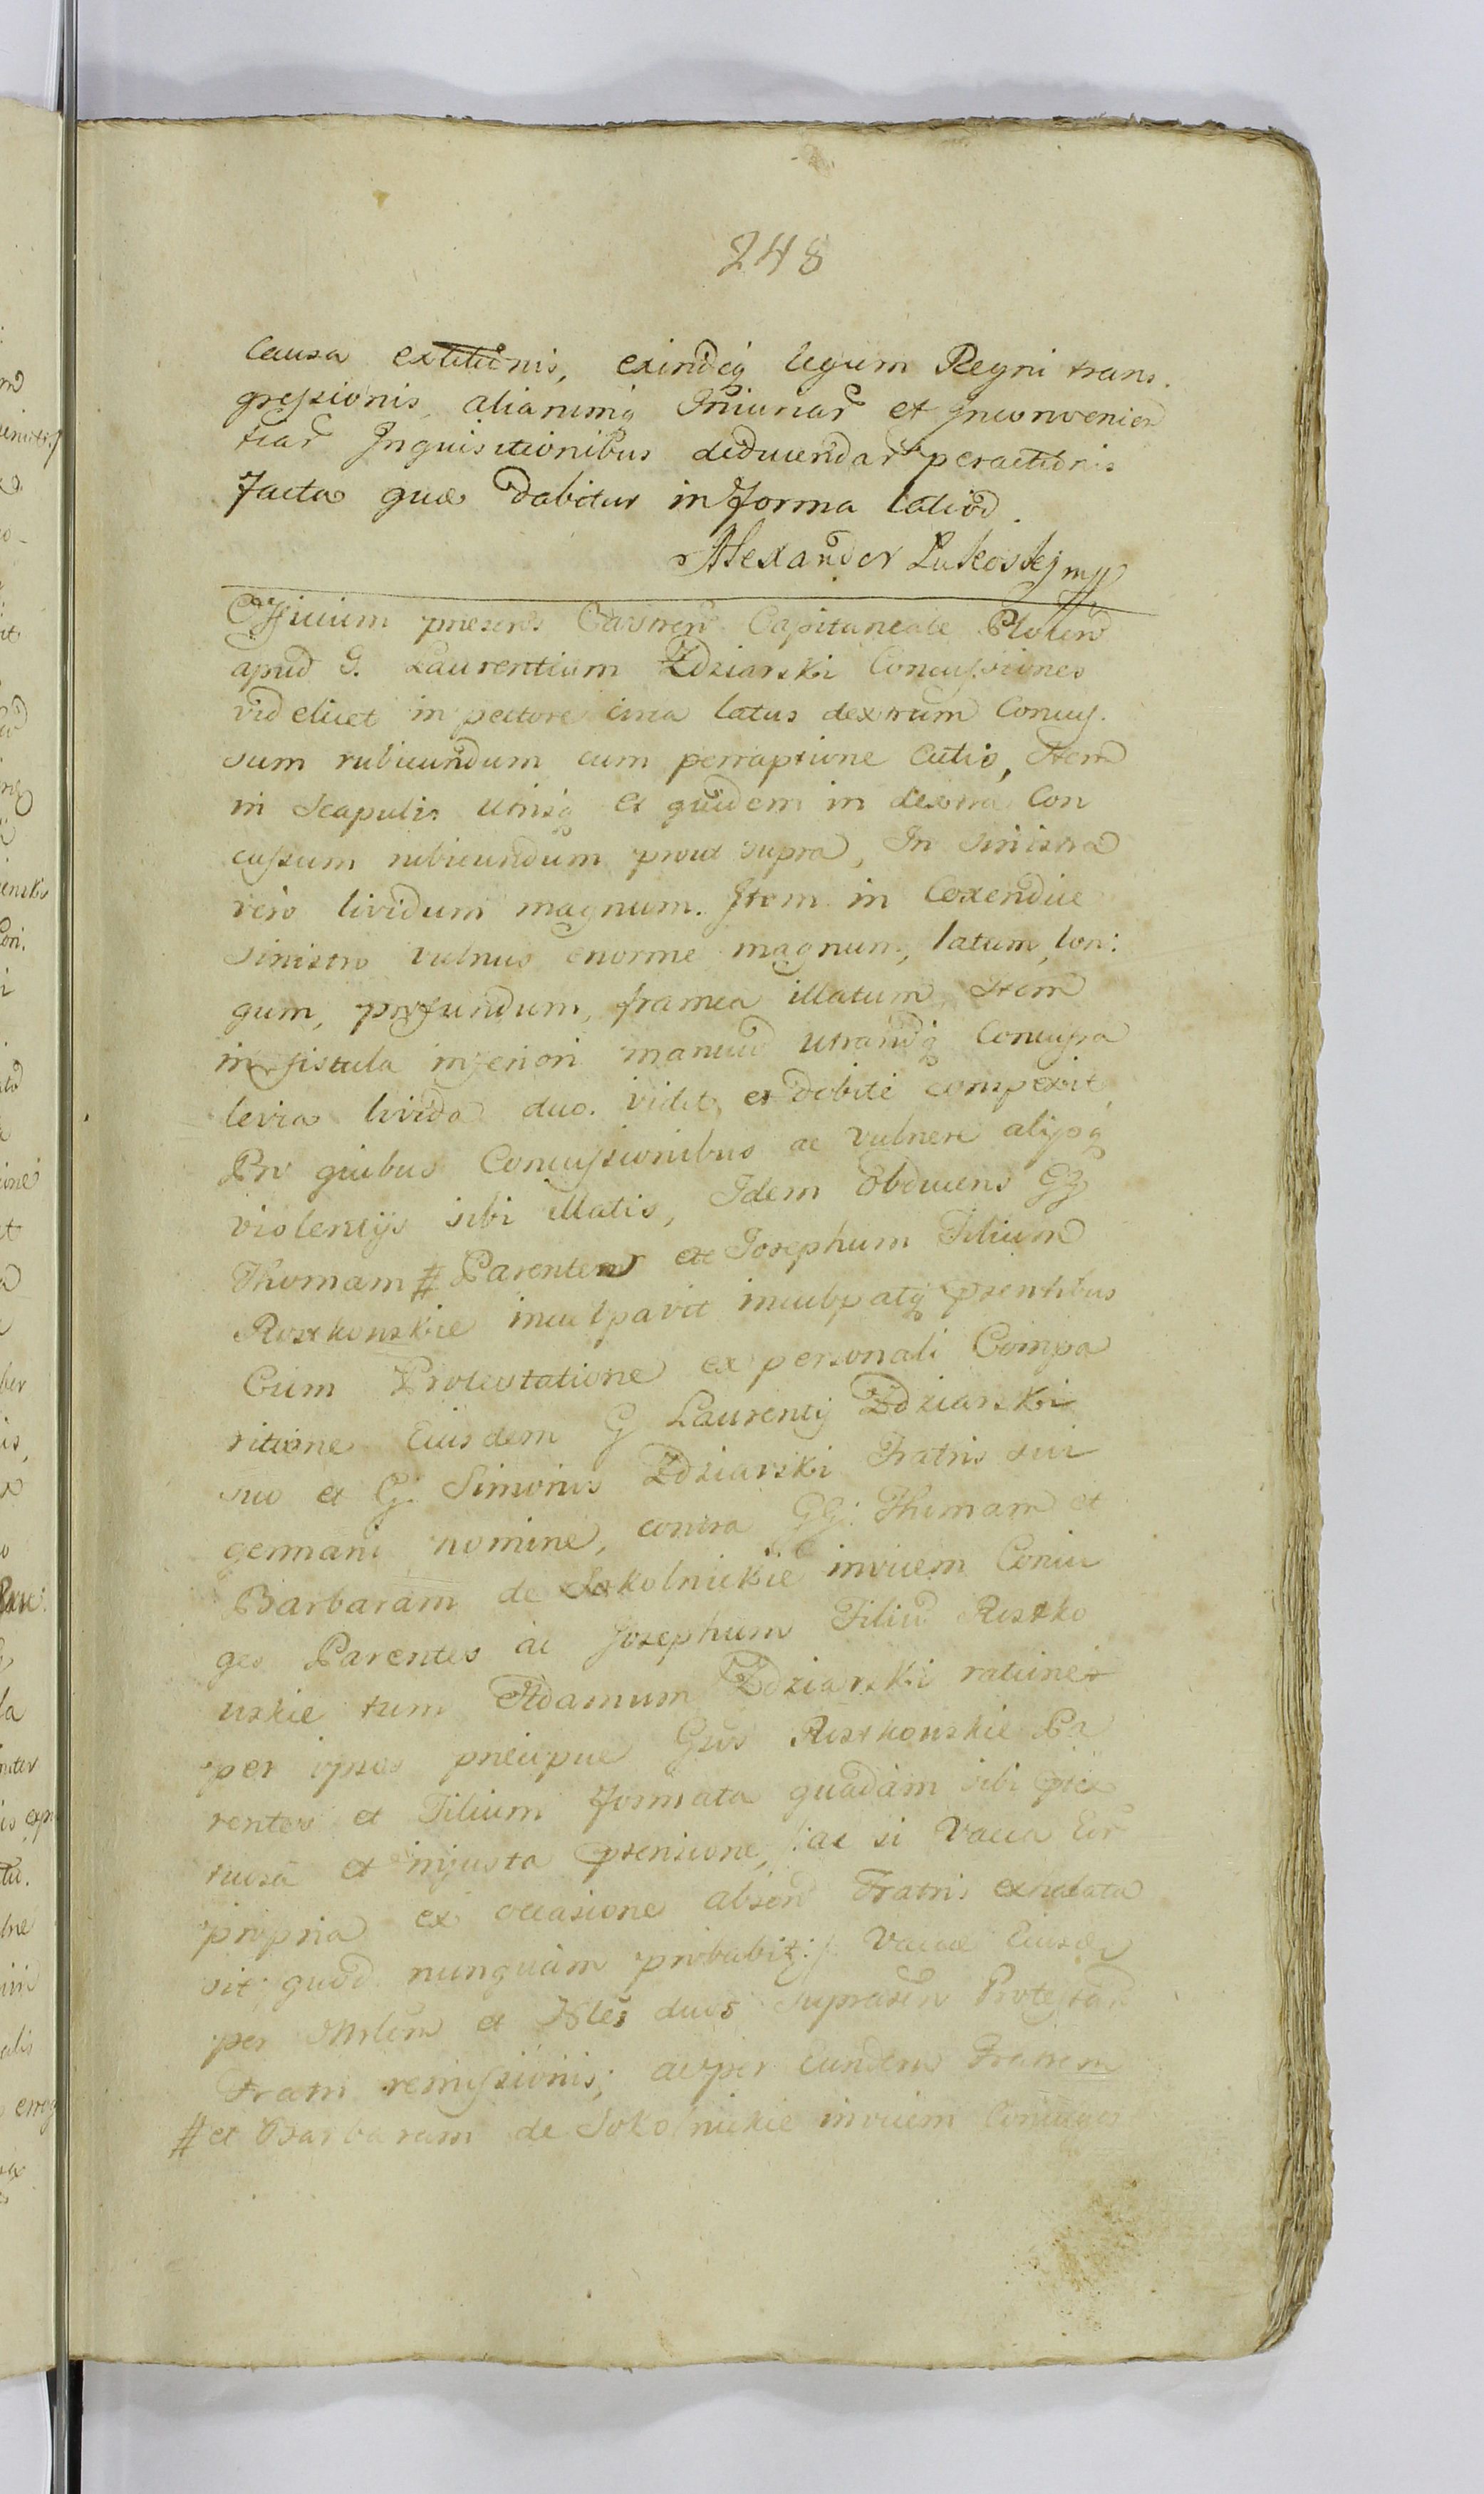 248
Causa extitionis, exindeq legum Regni trans.
gressionis, aliarumq Iniuriar et Inconvenien
tiar Inquisitionibus deducendar peractionis
facta quæ dabitur in forma latiori.
Alexander Lukoskj mp
Officium præsens Castren Capitaneale Plocen
apud G. Laurentium Zdziarski Concussiones
videlicet in pectore circa latus dextrum Concus.
sum rubicundum cum perruptione Cutis, Item
in Scapulis utrisq et quidem in dextra Con
cussum rubicundum prout supra, In sinistra
vero lividum magnum. Item in Coxendice
sinistro vulnus enorme magnum, latum, lon:
gum, profundum, framea illatum Item
in fistula inferiori manuum utrarumq Concussa
levia livida duo. vidit, et debite conspexit
Pro quibus Concussionibus ac vulnere alijsq
violentijs sibi illatis, Idem Obducens GG
Thomam # Parentes et Josephum Filium
Rostkowskie inculpavit inculpatq præsentibus
Cum Protestatione ex personali Compa
ritione Eiusdem G Laurentij Zdziarski
suo et G. Simonis Zdziarski Fratris sui
germani nomine, contra GG: Thomam et
Barbaram de Sokolnickie invicem Coniu
ges Parentes ac Josephum Filiu Rostko
wskie tum Adamum Zdziarski ratione
per ipsos præcipue Gsos Rostkowskie Pa
rentes et Filium formata quadam sibi prætex
tuosa et injusta prætensione, /: ac si vacca Eor
propria ex occasione absen Fratris exnelata
sit, quod nunquam probabit :/ vaccæ Eiusdem
per et duos suprascri Protestan
Fratri remissionis; ac per eundem Fratrem
# et Barbaram de Sokolnickie invicem Coniuges